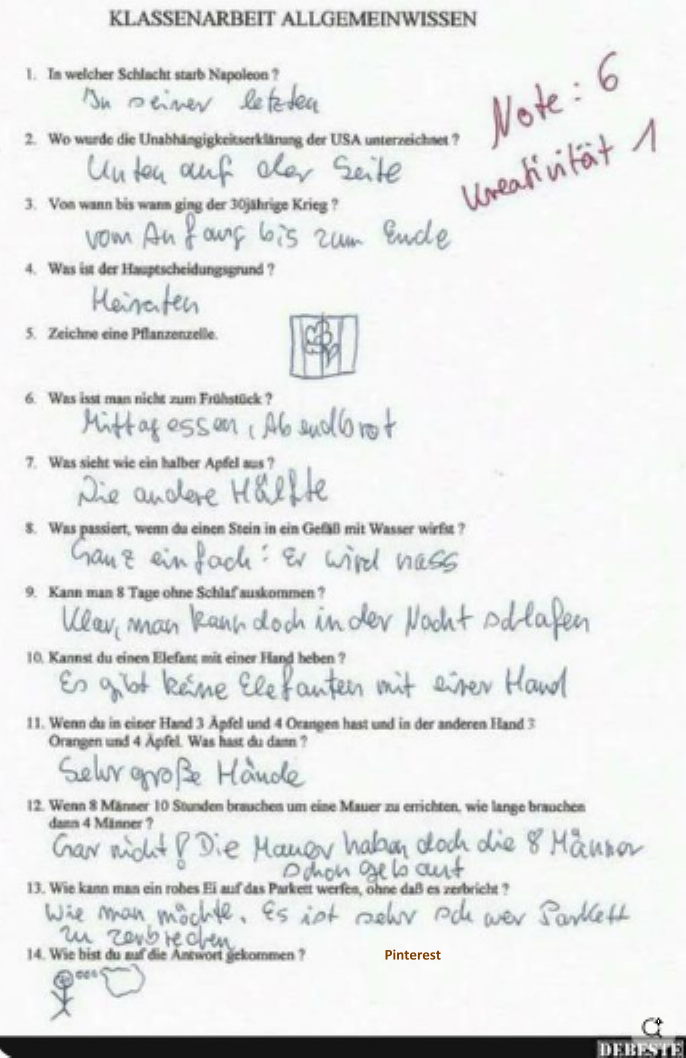 KLASSENARBEIT ALLGEMEINWISSEN
1. In welcher Schlacht starb Napoleon ?
In seiner letzten
Note : 6
Kreativität 1
2. Wo wurde die Unabhängigkeitserklärung der USA unterzeichnet ?
Unten auf der Seite
3. Von wann bis wann ging der 30jährige Krieg ?
vom Anfang bis zum Ende
4. Was ist der Hauptscheidungsgrund ?
Heiraten
5. Zeichne eine Pflanzenzelle.
6. Was isst man nicht zum Frühstück ?
Mittagessen, Abendbrot
7. Was sieht wie ein halber Apfel aus ?
Die andere Hälfte
8. Was passiert, wenn du einen Stein in ein Gefäß mit Wasser wirfst ?
Ganz einfach: Er wird nass
9. Kann man 8 Tage ohne Schlaf auskommen ?
Klar, man kann doch in der Nacht schlafen
10. Kannst du einen Elefant mit einer Hand heben ?
Es gibt keine Elefanten mit einer Hand
11. Wenn du in einer Hand 3 Äpfel und 4 Orangen hast und in der anderen Hand 3
Orangen und 4 Äpfel. Was hast du dann ?
Sehr große Hände
12. Wenn 8 Männer 10 Stunden brauchen um eine Mauer zu errichten, wie lange brauchen
dann 4 Männer ?
Gar nicht! Die Mauer haben doch die 8 Männer
schon gebaut
13. Wie kann man ein rohes Ei auf das Parkett werfen, ohne daß es zerbricht ?
Wie man möchte. Es ist sehr schwer Parkett
zu zerbrechen
14. Wie bist du auf die Antwort gekommen ?
Pinterest
DEBESTE